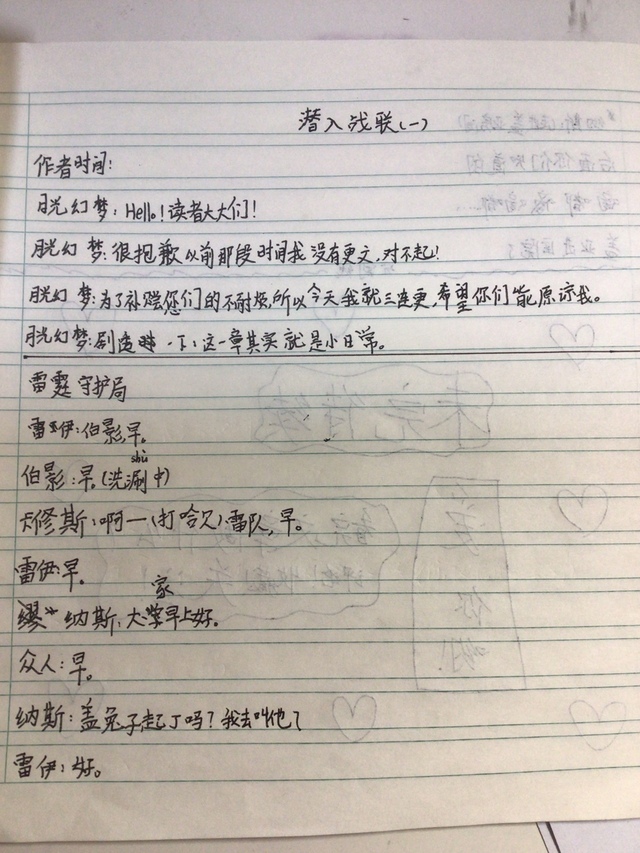 潜入战联(一)
作者时间:
月光幻梦:Hello!读者大大们!
月光幻梦:很抱歉以前那段时间我没有更文,对不起!
月光幻梦:为了补偿您们的不耐烦,所以今天我就三连更,希望你们能原谅我。
月光幻梦:剧透一下:这一章其实就是小日常。
雷霆守护局
雷伊:伯影,早。
shù
伯影:早。(洗涮中)
卡修斯:啊一(打哈欠)雷队,早。
雷伊:早。
家
纳斯:大早上好。
众人:早。
纳斯:盖兔子,起了吗?我去叫他了
雷伊:好。
未完待续